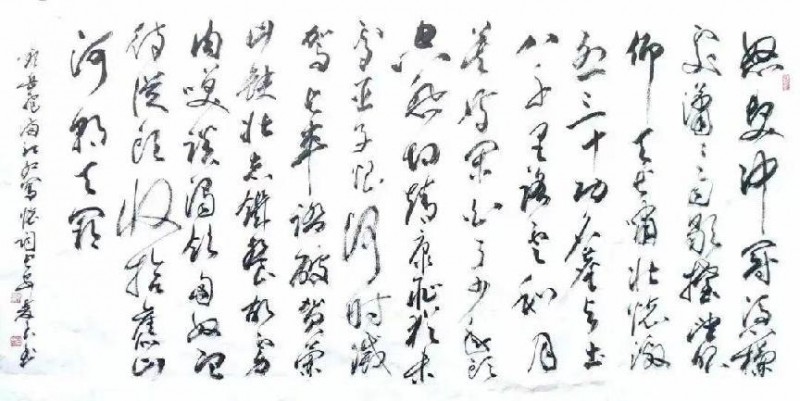 怒发冲冠凭栏
处潇〻雨歇抬望眼
仰天长啸壮怀激
烈三十功名尘与土
八千里路云和月
莫等闲白了少年头
空悲切靖康耻犹未
雪臣子恨何时灭
驾长车踏破贺兰
山缺壮志饥餐胡虏
肉笑谈渴饮匈奴血
待从头收拾旧山
河朝天阙
岳飞满江红写怀词一首 书